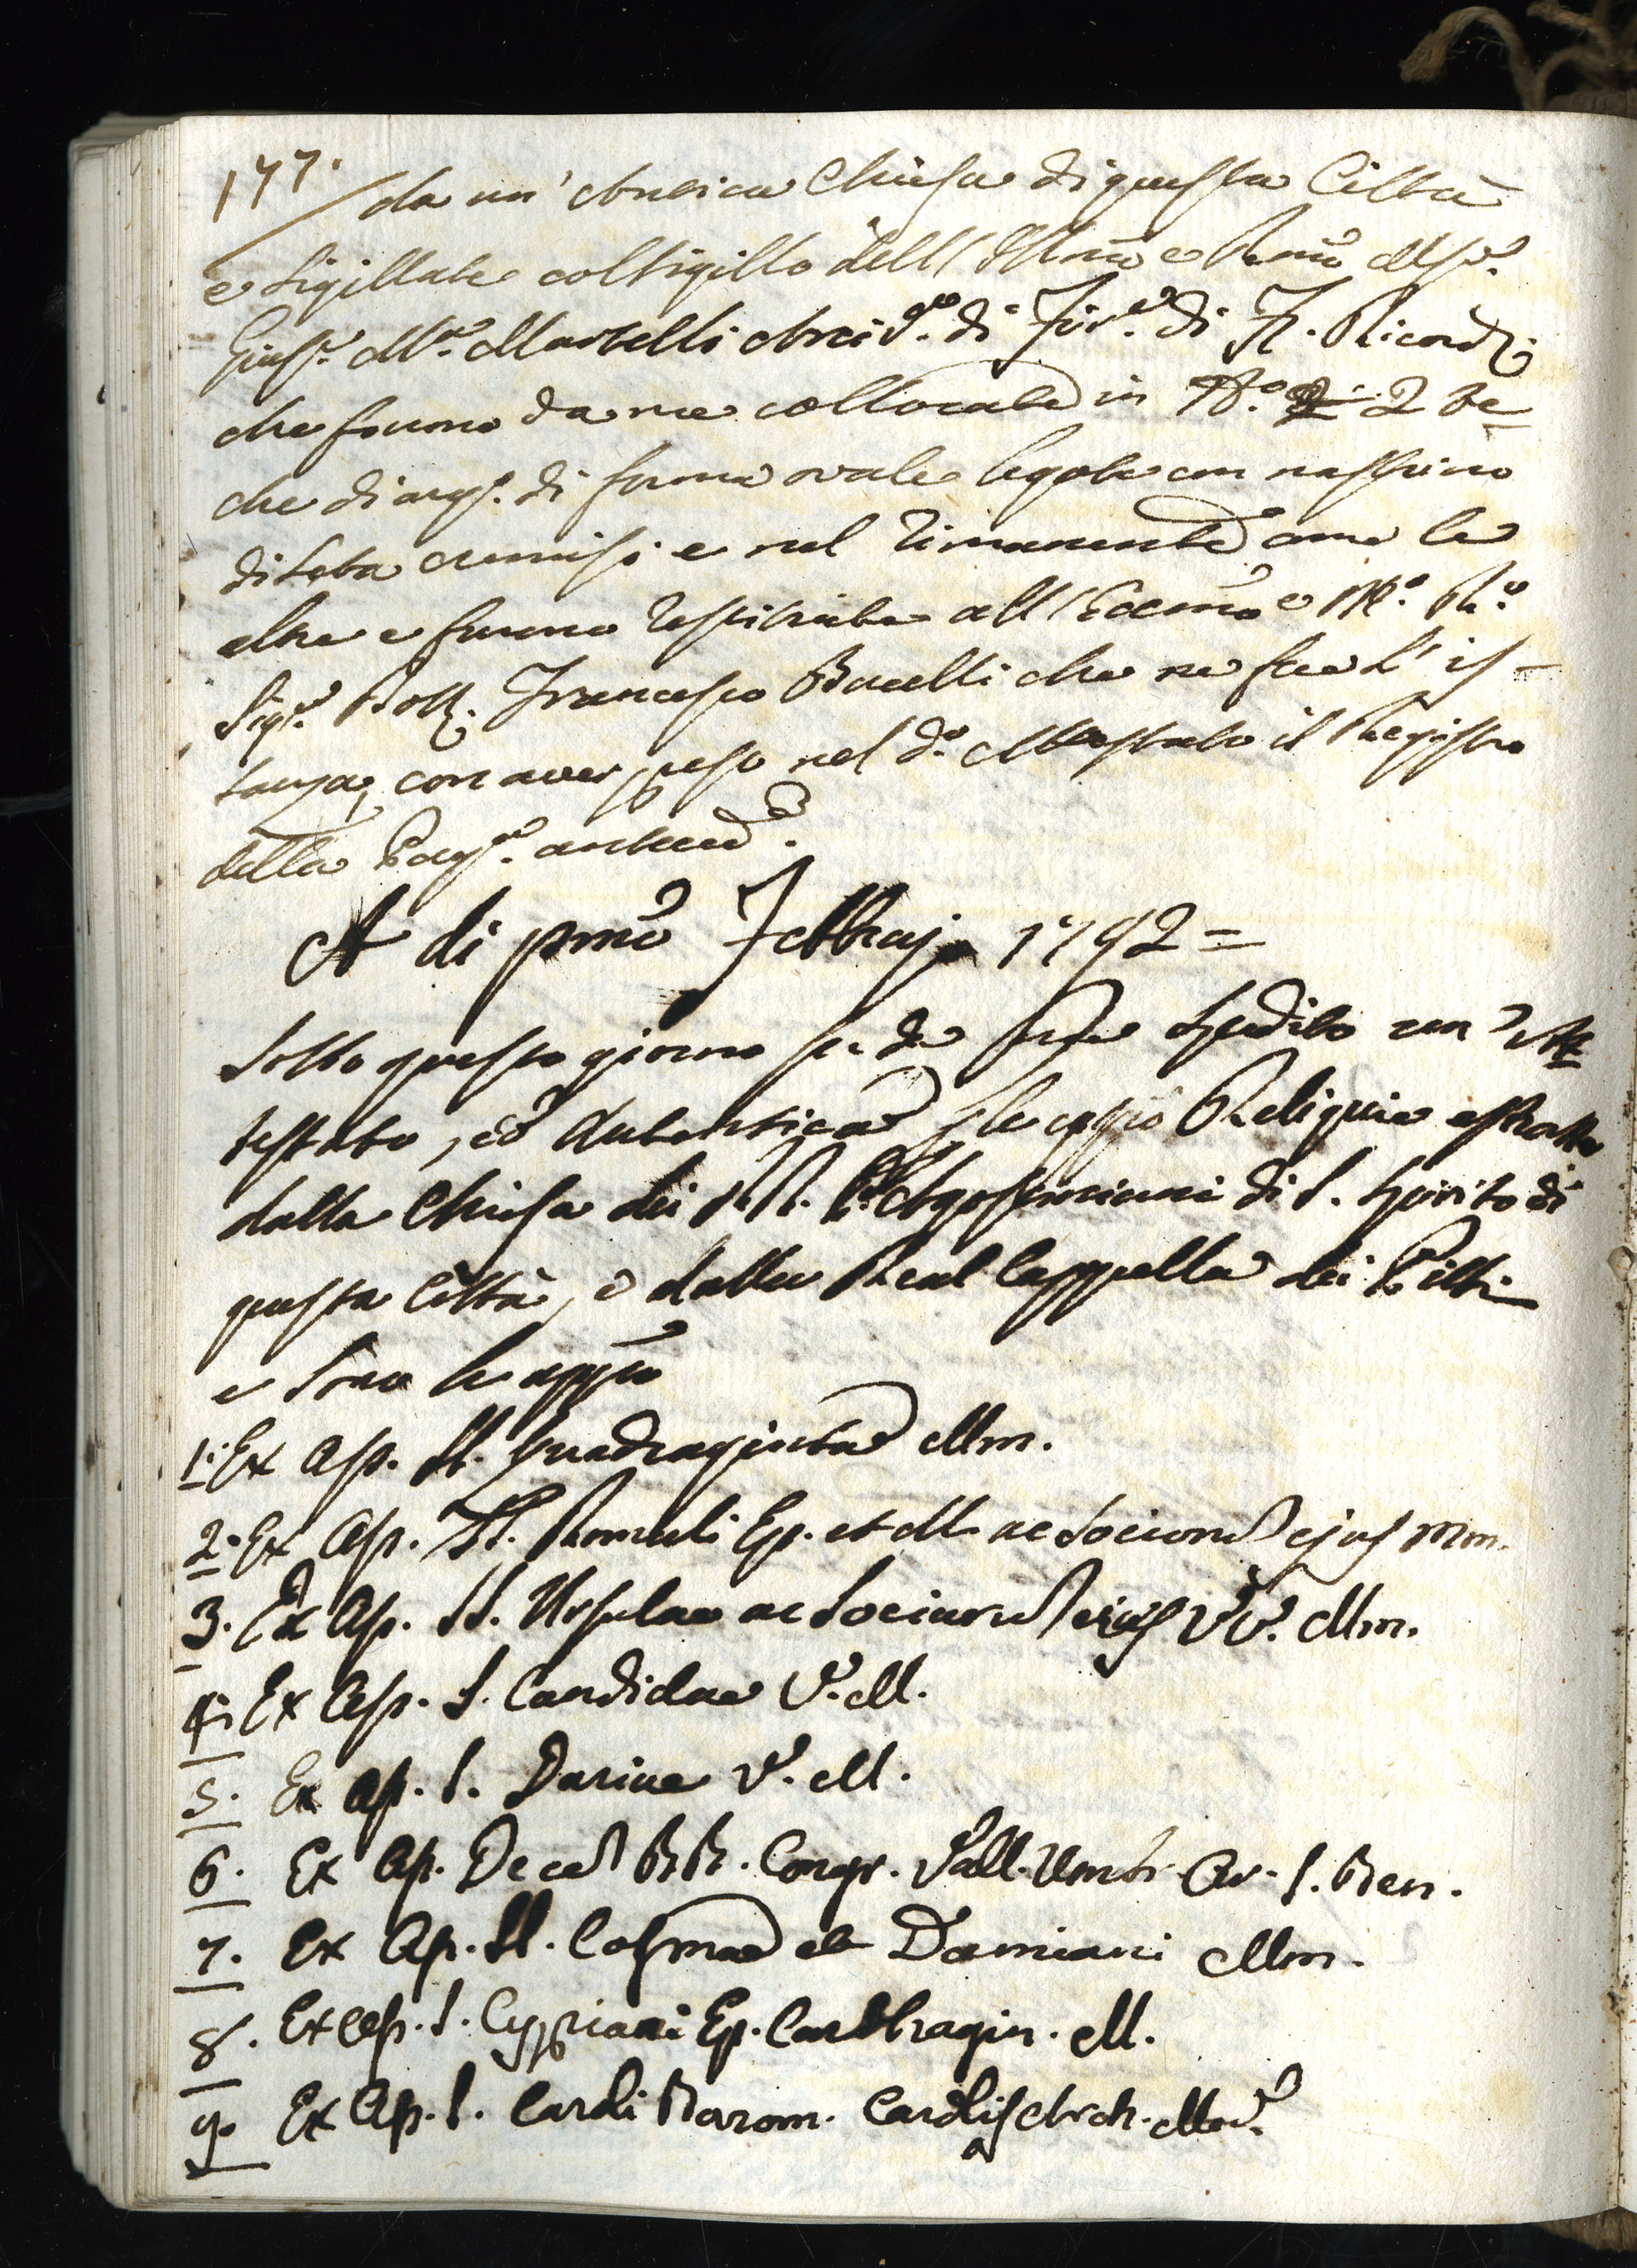 177.
da un' Antica Chiesa di questa Città
e sigillate col sigillo dell' Illmo e Rmo Msr.
Gius.e M.a Martelli Arciv.o di Fir.e di F. Ricord.
che furono da me collocate in N.o 2 te-
che di arg.o di forma ovale legate con nastrino
di seta cremisi e nel rimanente come le
altre e furono restituite all' Eccmo e M.o R.o
Sig.e Dott. Francesco Bucelli che ne fece l' is-
tanza, con aver preso nel d.o Attestato il Registro
della Pag.a anteced.e
A di pmo Febbrajo 1792 =
Sotto questo giorno fu da spedito un' At-
testato, ed Autentica p le appie Reliquie estratte
dalla Chiesa dei P.P. Agostiniani di S. Spirito di
questa Città, e dalla Real Cappella dei Pitti
e sono le appie
1. Ex Ap. SS. Quadraginta Mm.
2. Ex Ap. SS. Romuli Ep. et M. ac Sociorū ejus Mm.
3. Ex Ap. SS. Ursulae ac Sociarū ejus VV. Mm.
4. Ex Ap. S. Candidae V. M.
5. Ex Ap. S. Dariae V. M.
6. Ex Ap. Decē BB. Congr. Vall. Umbr. Or. S. Ben.
7. Ex Ap. SS. Cosmae et Damiani Mm.
8. Ex Ap. S. Cypriani Ep. Carthagin. M.
9. Ex Ap. S. Caroli Borom. Cardlis Arch. Med.